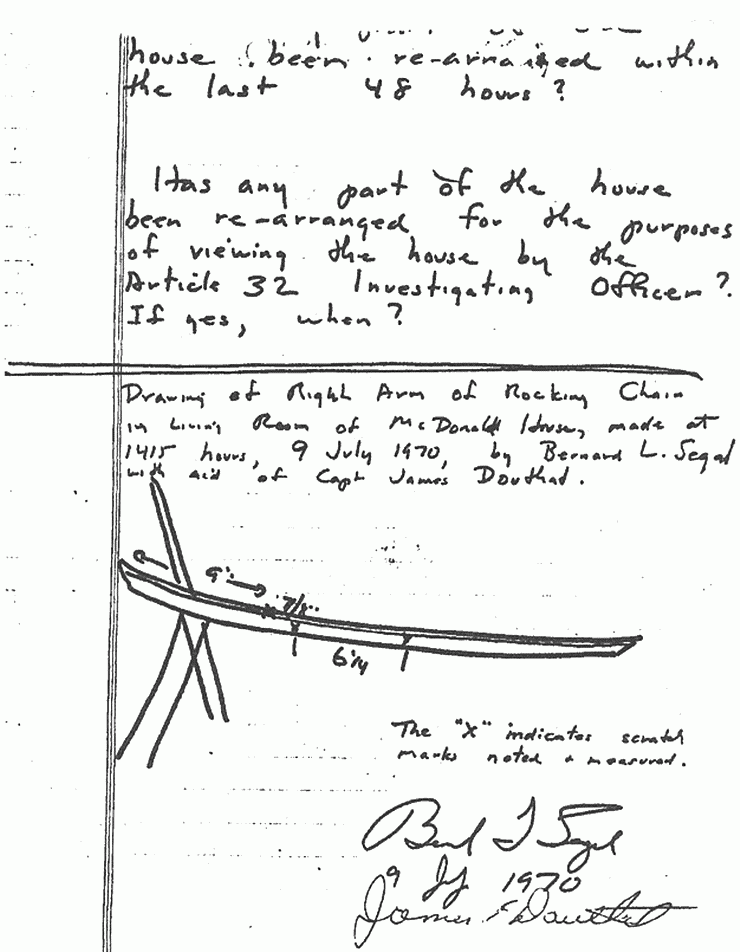 house been re-arranged within
the last 48 hours?
Has any part of the house
been re-arranged for the purposes
of viewing the house by the
Article 32 Investigating Officer?
If yes, when?
Drawing of Right Arm of Rocking Chair
in Living Room of McDonald House, made at
1415 hours, 9 July 1970, by Bernard L. Segal
with aid of Capt James Douthat.
9"
7/8"
6 1/4
The "X" indicates scratch
marks noted & measured.
Bernard L Segal
9 July 1970
James F Douthat